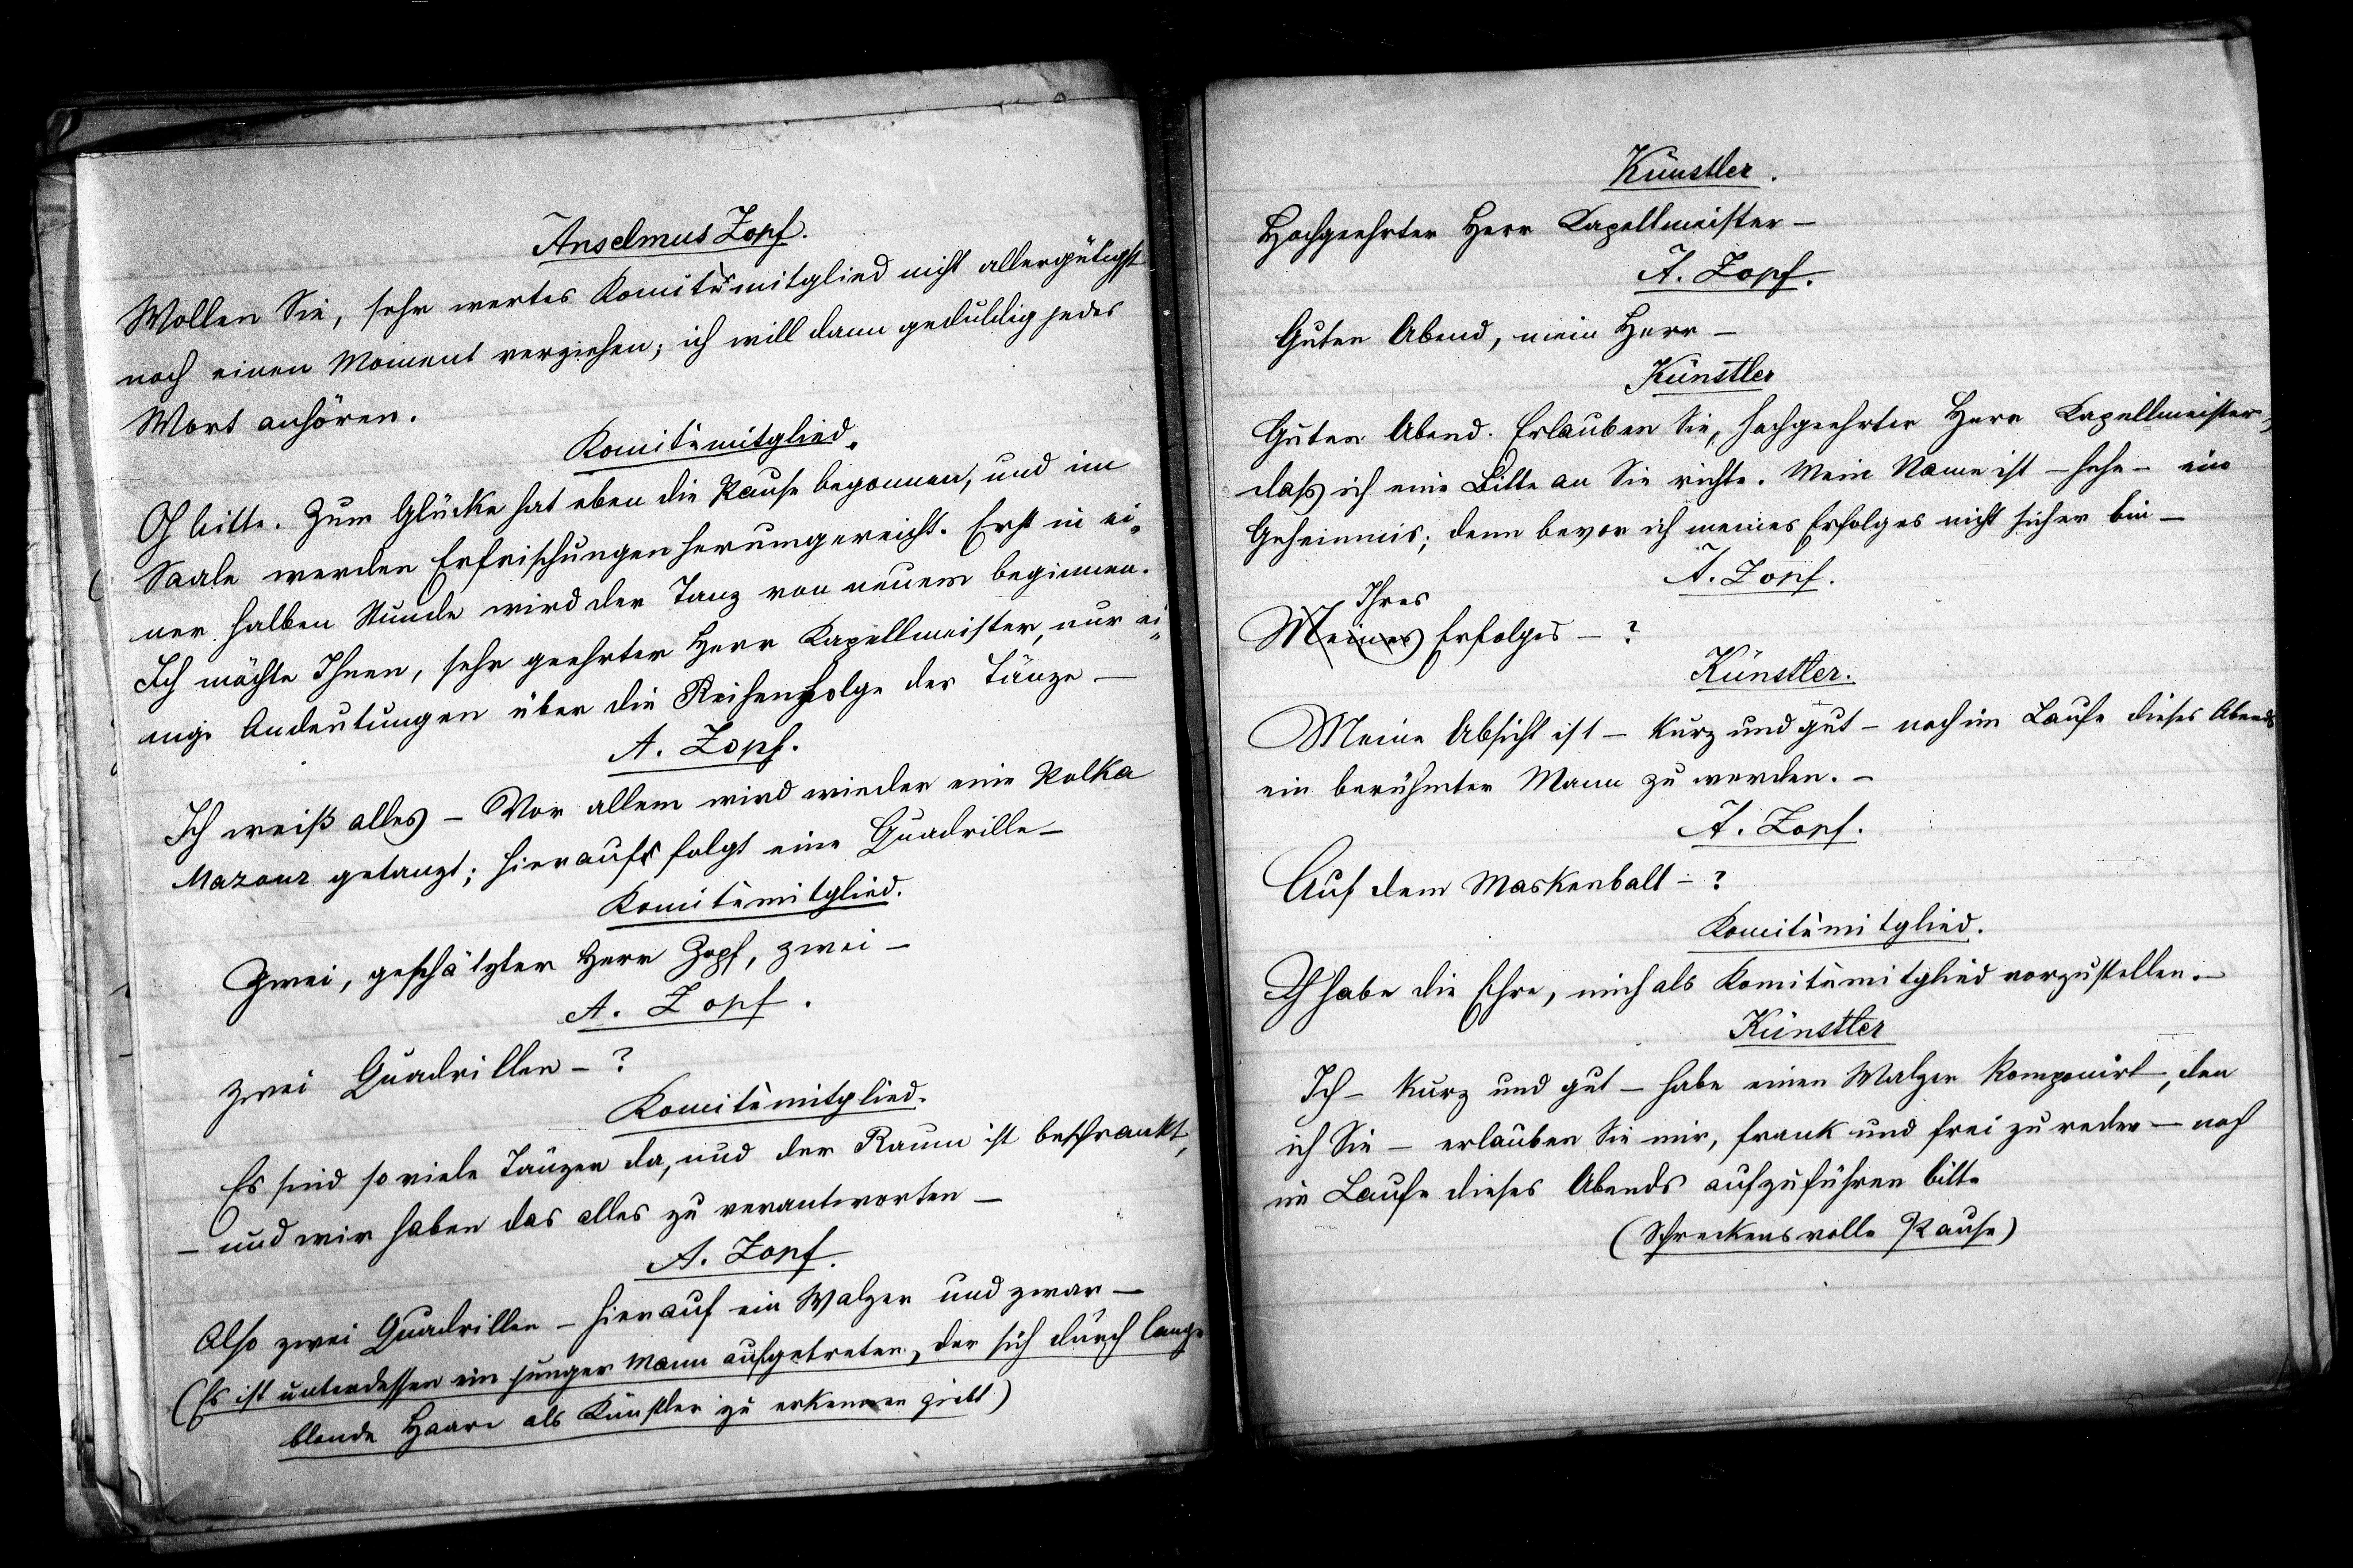 Anselmus Zopf.
Wollen Sie, sehr wertes Komitémitglied nicht allergütigst
noch einen Moment verziehen; ich will dann geduldig jedes
Wort anhören.
Komitèmitglied.
O bitte. Zum Glücke hat eben die Pause begonnen, und im
Saale werden Erfrischungen herumgereicht. Erst in ei-
ner halben Stunde wird der Tanz von neuem beginnen.
Ich möchte Ihnen, sehr geehrter Herr Kapellmeister, nur ei-
nige Andeutungen über die Reihenfolge der Tänze —
A. Zopf.
Ich weiß alles — Vor allem wird wieder eine Polka
Mazour getanzt; hierauf folgt eine Quadrille —
Komitèmitglied.
Zwei, geschätzter Herr Zopf, zwei —
A. Zopf.
zwei Quadrillen — ?
Komitèmitglied.
Es sind so viele Tänzer da, und der Raum ist beschrankt,
— und wir haben das alles zu verantworten —
A. Zopf.
Also zwei Quadrillen — hierauf ein Walzer und zwar —
(Es ist unterdessen ein junger Mann aufgetreten, der sich durch lange
blonde Haare als Künstler zu erkennen giebt)
Künstler.
Hochgeehrter Herr Kapellmeister —
A. Zopf.
Guten Abend, mein Herr —
Künstler
Guten Abend. Erlauben Sie, hochgeehrter Herr Kapellmeister,
dass ich eine Bitte an Sie richte. Mein Name ist — hehe — ein
Geheimnis; denn bevor ich meines Erfolges nicht sicher bin —
A. Zopf.
Ihres
Meines Erfolges — ?
Künstler.
Meine Absicht ist — kurz und gut — noch im Laufe dieses Abends
ein berühmter Mann zu werden. —
A. Zopf.
Auf dem Maskenball — ?
Komitèmitglied.
Ich habe die Ehre, mich als Komitèmitglied vorzustellen. —
Künstler
Ich — kurz und gut — habe einen Walzer komponirt, den
ich Sie — erlauben Sie mir, frank und frei zu reden — noch
im Laufe dieses Abends aufzuführen bitte
(Schreckensvolle Pause)